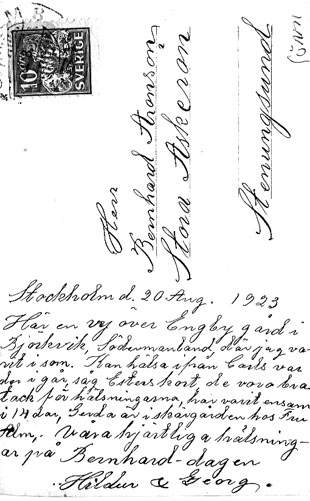 10
SVERIGE
Herr
Bernhard Aronson
Stora Askeron
Stenungsund
Stockholm d. 20 Aug. 1923
Här en vy över Engby gård i
Björkvik, Södermanland, där jag va
rit i som. Kan hälsa ifrån Carls var
der i går, såg Esters kort, de voro bra
tack för hälsningarna, har varit ensam
i 14 dar, Gerda är i skärgården hos Fru
Våra hjärtliga hälsning-
ar på Bernhard-dagen
Hildur & Georg.